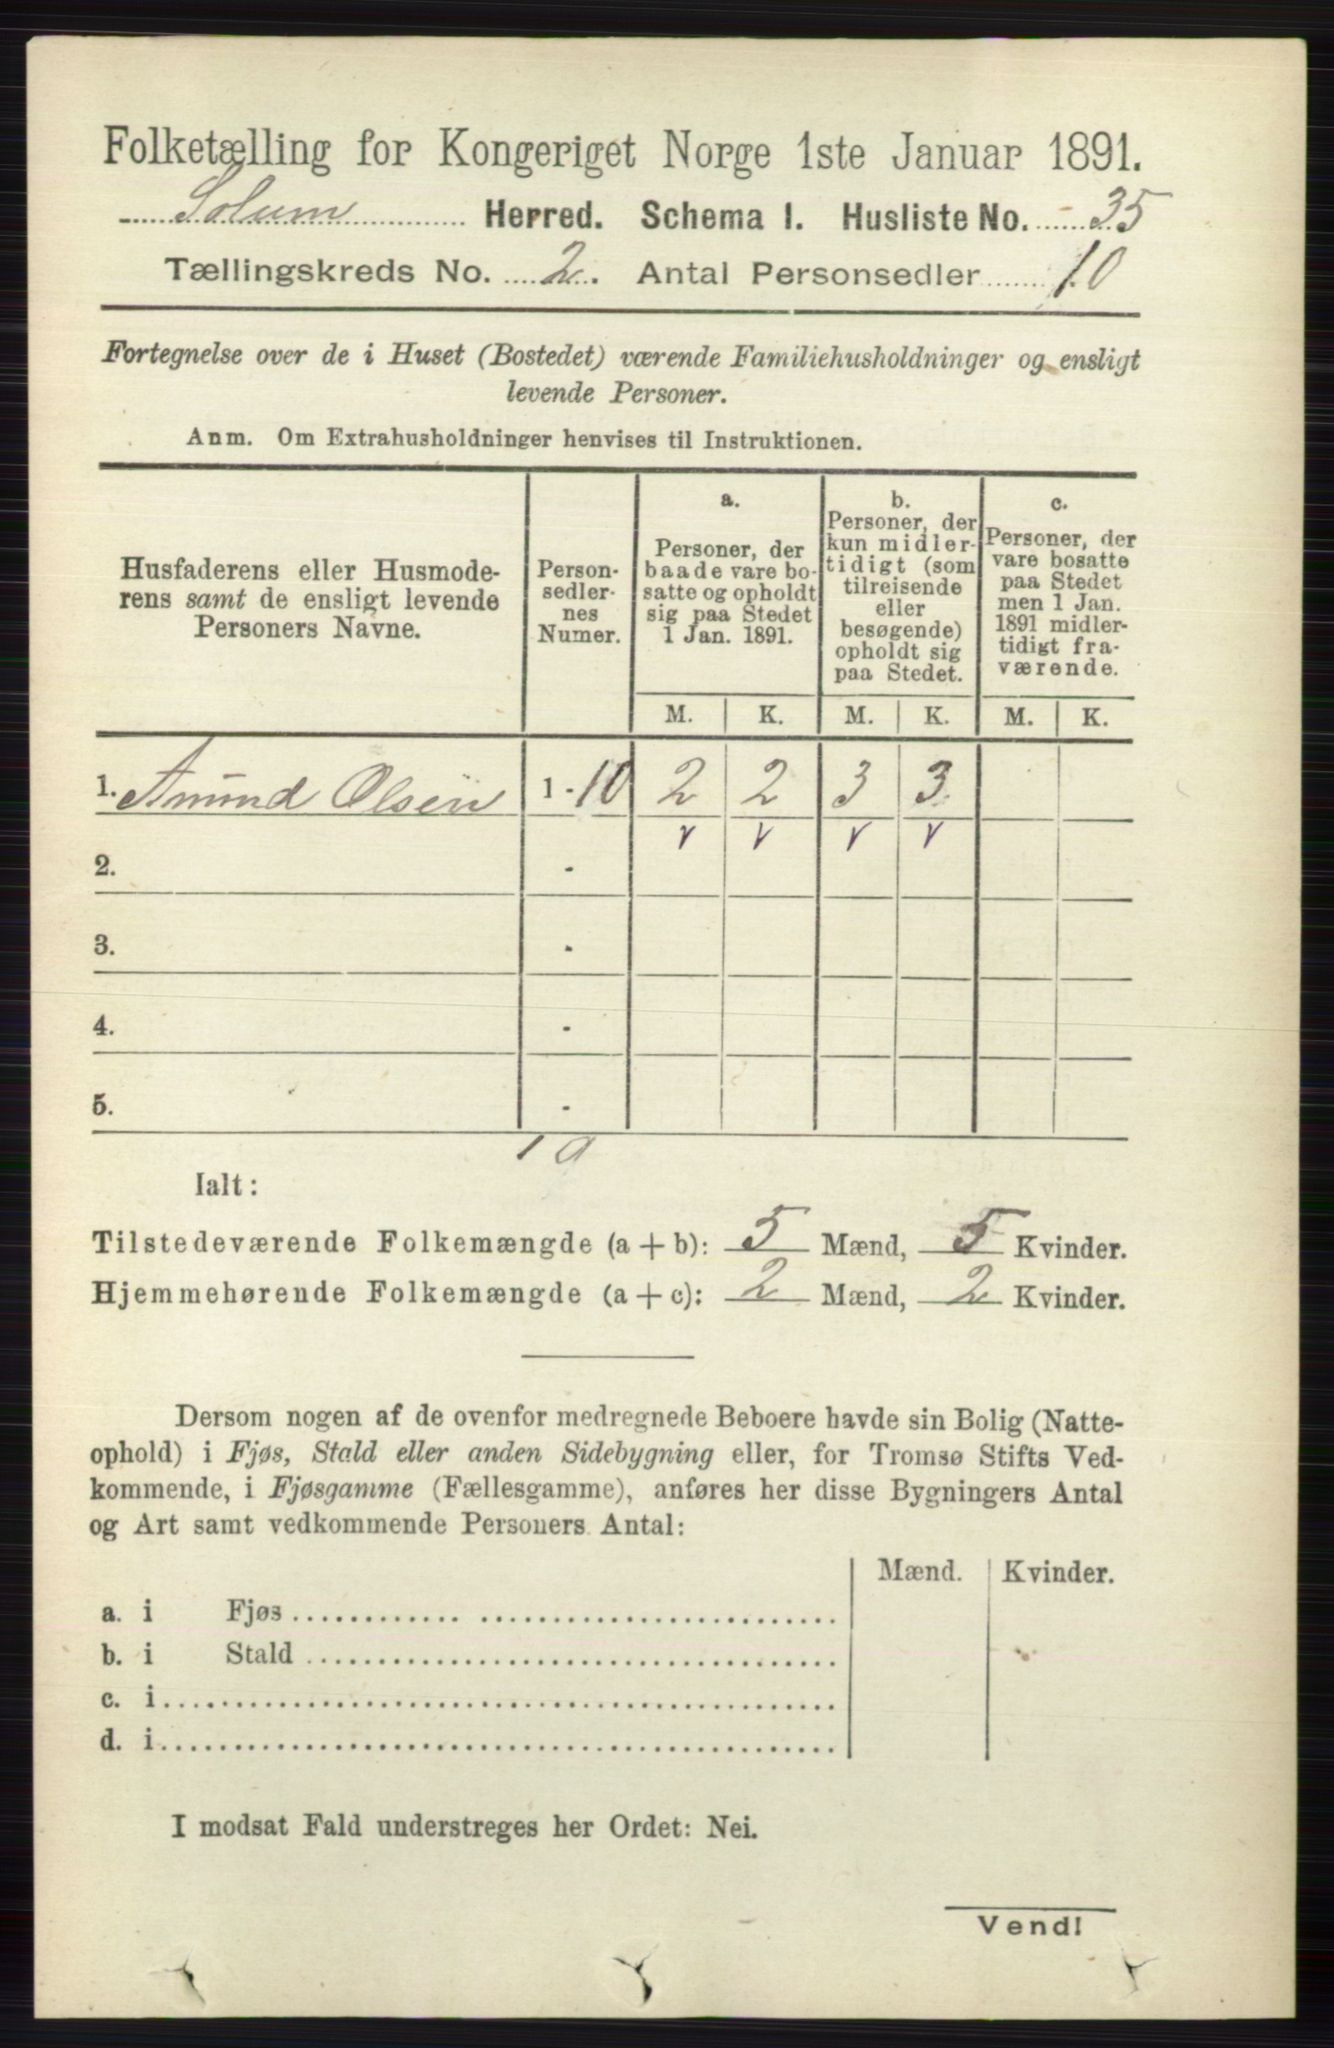 Folketælling for Kongeriget Norge 1ste Januar 1891.
Solum Herred. Schema 1. Husliste No. 35
Tællingskreds No. 2. Antal Personsedler 10
Fortegnelse over de i Huset (Bostedet) værende Familiehusholdninger og ensligt
levende Personer.
Anm. Om Extrahusholdninger henvises til Instruktionen.
Husfaderens eller Husmode-
rens samt de ensligt levende
Personers Navne.
Person-
sedler-
nes
Numer.
a.
Personer, der
baade vare bo-
satte og opholdt
sig paa Stedet
1 Jan. 1891.
b.
Personer, der
kun midler-
tidigt (som
tilreisende
eller
besøgende)
opholdt sig
paa Stedet.
c.
Personer, der
vare bosatte
paa Stedet
men 1 Jan.
1891 midler-
tidigt fra-
værende.
M. K. M. K. M. K.
1. Amund Olsen 1 - 10 2 2 3 3
v v v v
2. -
3. -
4. -
5. -
10
Ialt:
Tilstedeværende Folkemængde (a + b): 5 Mænd, 5 Kvinder.
Hjemmehørende Folkemængde (a + c): 2 Mænd, 2 Kvinder.
Dersom nogen af de ovenfor medregnede Beboere havde sin Bolig (Natte-
ophold) i Fjøs, Stald eller anden Sidebygning eller, for Tromsø Stifts Ved-
kommende, i Fjøsgamme (Fællesgamme), anføres her disse Bygningers Antal
og Art samt vedkommende Personers Antal:
Mænd. Kvinder.
a. i Fjøs
b. i Stald
c. i
d. i
I modsat Fald understreges her Ordet: Nei.
Vend!